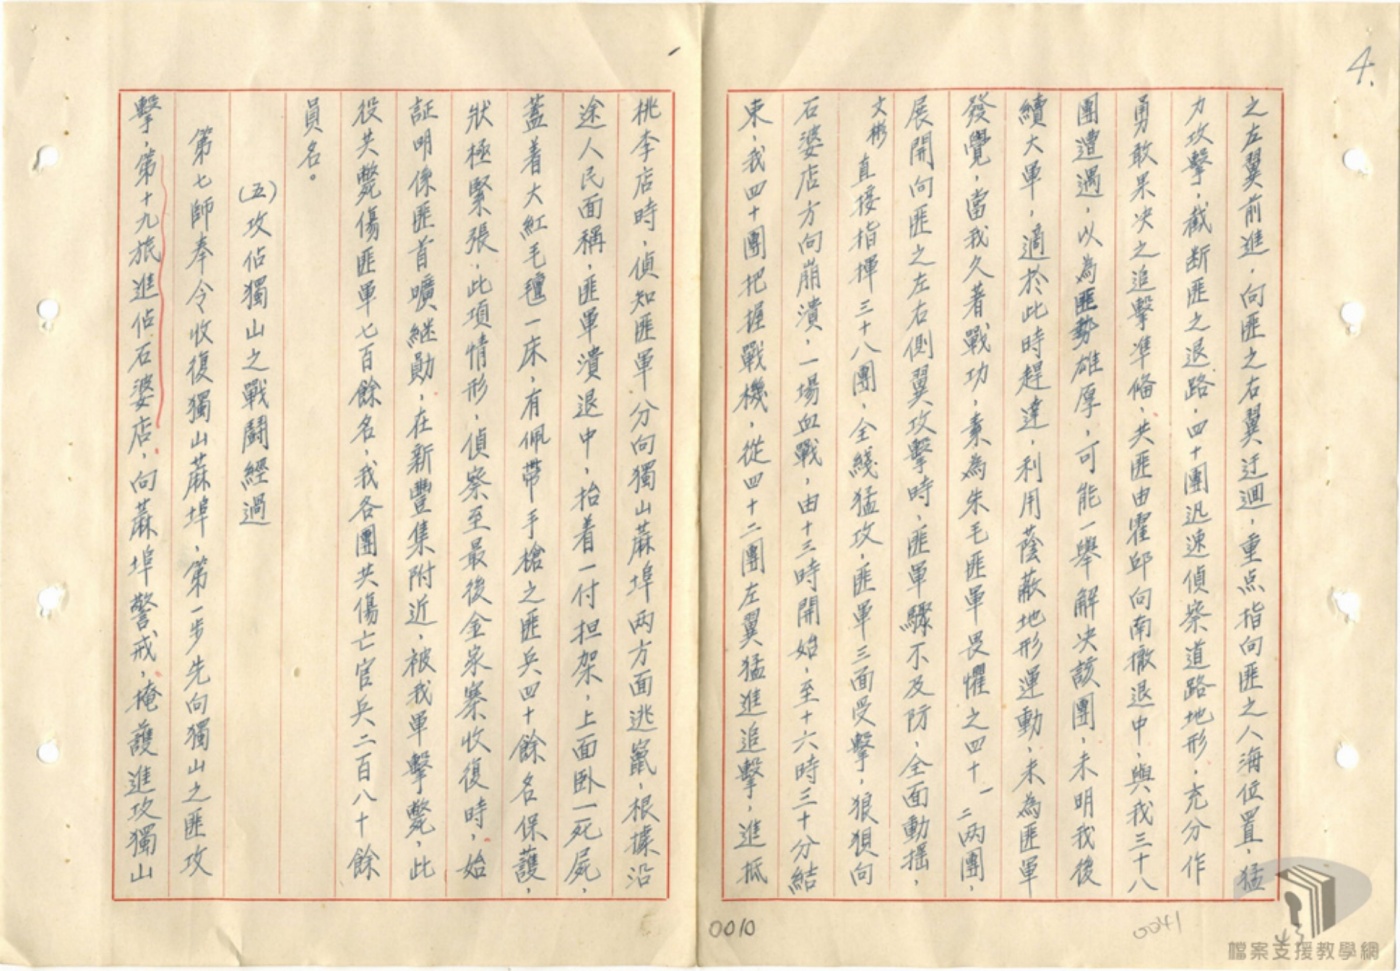 4.
之左翼前進，向匪之右翼迂迴，重点指向匪之人海位置，猛
力攻擊，截斷匪之退路，四十團迅速偵察道路地形，充分作
勇敢果决之追擊準備，共匪由霍邱向南撤退中，與我三十八
團遭遇，以為匪勢雄厚，可能一舉解决該團，未明我後
續大軍，適於此時趕達，利用蔭蔽地形運動，未為匪軍
發覺，當我久著戰功，素為朱毛匪軍畏懼之四十一二兩團，
展開向匪之左右側翼攻擊時，匪軍驟不及防，全面動搖，
文彬直接指揮三十八團，全綫猛攻，匪軍三面受擊，狼狽向
石婆店方向崩潰，一場血戰，由十三時開始，至十六時三十分結
束，我四十團把握戰機，從四十二團左翼猛進追擊，進抵
桃李店時，偵知匪軍分向獨山蔴埠两方面逃竄，根據沿
途人民面稱，匪軍潰退中，抬着一付担架，上面卧一死屍，
蓋着大紅毛氊一床，有佩帶手槍之匪兵四十餘名保護，
狀極緊張，此項情形，偵察至最後金家寨收復時，始
証明係匪首曠継勛，在新豐集附近，被我軍擊斃，此
役共斃傷匪軍七百餘名，我各團共傷亡官兵二百八十餘
員名。
(五)攻佔獨山之戰鬪經過
第七師奉令收復獨山蔴埠，第一步先向獨山之匪攻
擊，第十九旅進佔石婆店，向蔴埠警戒，掩護進攻獨山
0010
0041
檔案支援教學網